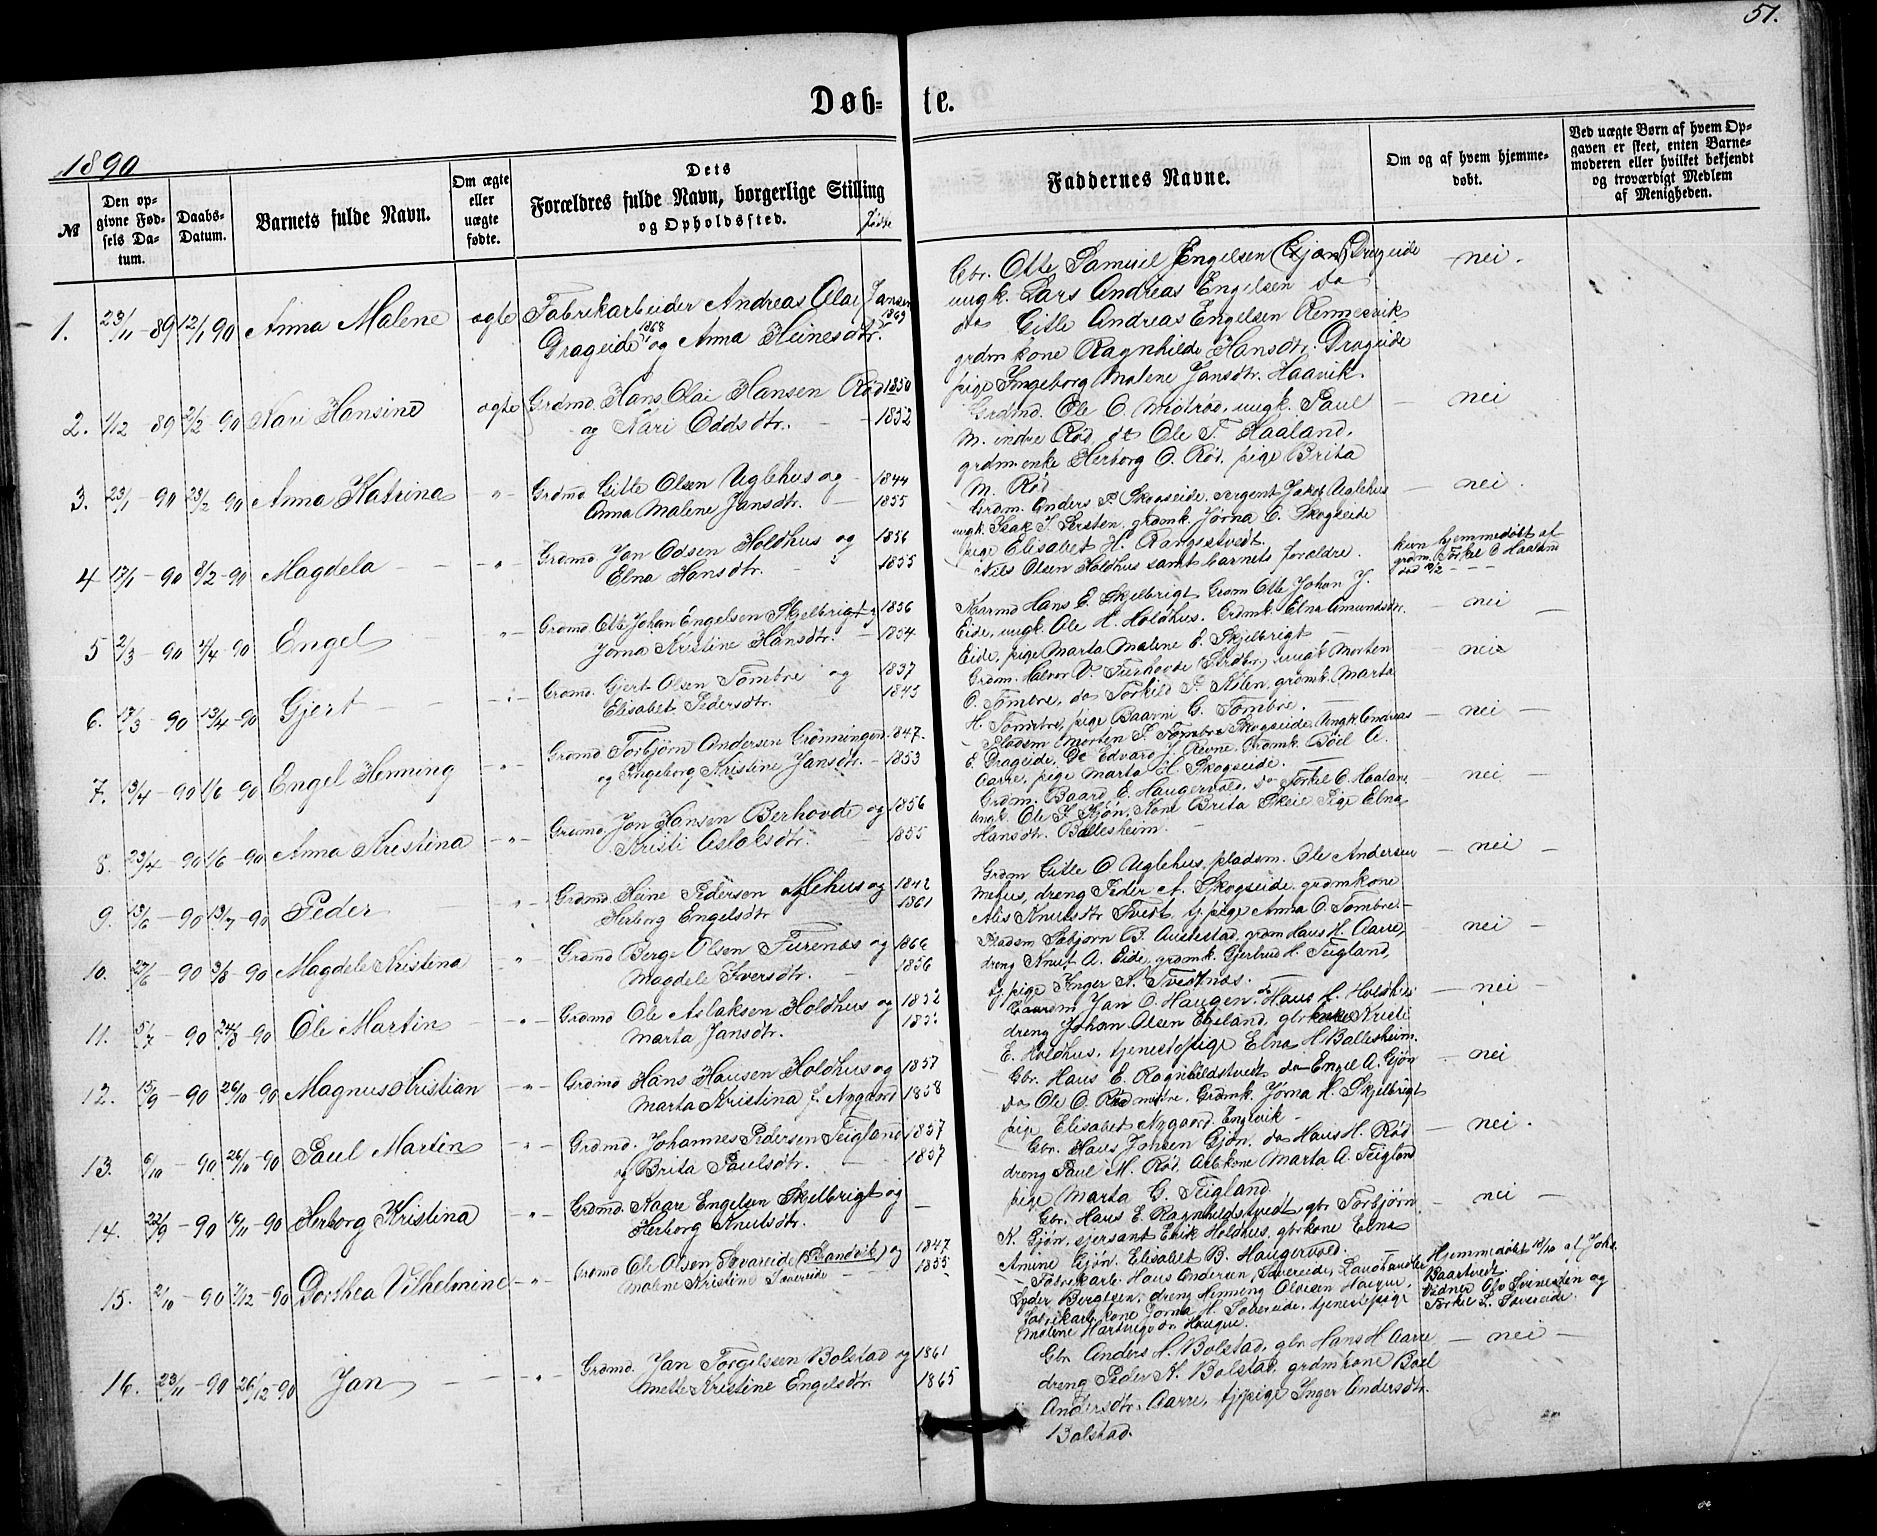 51.
Døb- te.
1890
№
Den op-
givne Fød-
sels Da-
tum.
Daabs-
Datum.
Barnets fulde Navn.
Om ægte
eller
uægte
fødte.
Dets
Forældres fulde Navn, borgerlige Stilling
og Opholdssted.
fødte
Faddernes Navne.
Om og af hvem hjemme-
døbt.
Ved uægte Børn af hvem Op-
gaven er skeet, enten Barne-
moderen eller hvilket bekjendt
og troværdigt Medlem
af Menigheden.
1. 23/11 89 12/1 90 Anna Malene ægte Fabrikarbeider Andreas Olai Jansen 1863
Drageide 1868 og Anna Heinesdtr.
Gbr. Otte Samuel Engelsen (Gjøn) Drageide
ungk. Lars Andreas Engelsen do
do Gitle Andreas Engelsen Rennesvik
grdm kone Ragnhilde Hansdtr. Drageide
pige Ingeborg Malene Jansdtr. Haavik.
nei.
2. 1/12 89 2/2 90 Kari Hansine ægte Grdmd. Hans Olai Hansen Rød 1850
og Kari Oddsdtr. 1852
Grdmd. Ole O. Midtrød, ungk. Paul
M. indre Rød, dt Ole T. Haaland,
grdm enke Herborg O. Rød, pige Brita
M. Rød
nei
3. 23/1 - 90 23/2 90 Anna Katrina - " - Grdmd Gitle Olsen Uglehus og 1844
Anna Malene Jansdtr. 1855
Grdm. Anders P. Skogseide, sergent Jakob Uglehus
ungk. Isak J. Sersten, grdmk. Jorna O. Skogseide
pige Elisabet H. Rangsstvedt.
nei.
4 17/1 - 90 8/2 - 90 Magdela - " - Grdmd Jon Odsen Holdhus og 1856
Elna Hansdtr. 1855
Nils Olsen Holdhus samt barnets forældre.
kun hjemmedøbt af
grdm. Torkel O Haaland
død 10/2
5 2/3 - 90 4/4 90 Engel - " - Grdmd. Otte Johan Engelsen Skjelbrigt og 1856
Jorna Kristine Hansdtr. 1854
Kaarmd Hans E. Skjelbrigt Grdm Otte Johan J.
Eide, ungk. Ole H. Holdhus. Grdmk. Elna Amundsdtr.
Eide, pige Marta Malene E. Skjelbrigt
nei
6. 17/3 - 90 13/4 - 90 Gjert - " - Grdmd. Gjert Olsen Tombre og 1837
Elisabet Pedersdtr. 1843
Grdm. Halvor V. Furhovde (Strdbr.) ungk Morten
O. Tombre, do Torkild P. Aslen, grdmk. Marta
H. Tombre, pige Baarni G. Tombre.
nei
7. 13/4 - 90 1/6 - 90 Engel Henning - " - Grdmd Torbjørn Andersen Grønningen 1847.
og Ingeborg Kristine Jansdtr. 1853
Pladsm Morten P. Tombre Skogseide, Ungk. Andreas
E. Drageide, Do Edvard J. Revne. Grdmk. Boel A.
Aarre, pige Marta H. Skogseide.
nei
8. 23/4 - 90 1/6 - 90 Anna Kristina - " - Grdmd. Jon Hansen Berhovde og 1856
Kristi Aslaksdtr. 1855
Grdm. Baard E. Haugervold, do Torkel O. Haaland
ungk. Ole J. Gjøn, Kone Brita Skeie, Pige Elna
Hansdtr. Ballesheim.
nei
9. 13/6 - 90 13/7 - 90 Peder - " - Grdmd Heine Pedersen Mehus og 1842
Herborg Engelsdtr 1861
Grdm Gitle O Uglehus, pladsm. Ole Andersen
Mehus, dreng Peder A. Skogseide, grdmkone
Alis Knutsdtr Tvedt, tj pige Anna O. Tombre
nei
10. 27/6 - 90 3/8 - 90 Magdele Kristina " Grdmd Berge Olsen Furenæs og 1862
Magdele Iversdtr. 1856
Pladsm Asbjørn B. Austestad, grdm Hans H. Aarre,
dreng Knut A. Eide, grdmk. Gjertrud H. Teigland,
tj pige Inger A. Tvedtnæs.
nei
11. 5/7 90 24/8 - 90 Ole Martin - " - Grdmd Ole Aslaksen Holdhus og 1852
Marta Jansdtr.
Jan O. Haugen, do Hans H. Holdhus
dreng Johan Olsen Egeland, gbr kone Kristi
E. Holdhus, tjenestepige Elna H. Ballesheim.
nei
12. 15/9 - 90 26/10 - 90 Magnus Kristian - " - Grdmd Hans Hansen Holdhus og 1857
Marta Kristina f. Nygaard 1858
Gbr. Hans E. Ragnhildstvedt, do Engel A. Gjøn
do Ole O. Rød midtre, Grdmk. Jorna H. Skjelbrigt
pige Elisabet Nygaard Engevik
nei
13. 6/10 - 90 26/10 - 90 Paul Martin - " - Grdmd. Johannes Pedersen Teigland 1857
og Brita Paulsdtr. 1857
Gbr. Hans Johnsen Gjøn, do Hans H. Rød
dreng Paul M. Rød. Arbkone Marta A. Teigland
pige Marta G. Teigland.
nei.
14. 22/9 - 90 16/11 - 90 Herborg Kristina - " - Grdmd. Kaare Engelsen Skelbrigt og
Herborg Knutsdtr.
Gbr. Hans E. Ragnhildstvedt, gbr Torbjørn
K. Gjøn, sjersant Erik Holdhus, gbrkone Elna
Amine Gjøn. Elisabet B. Haugervold.
nei
15. 2/10 - 90 7/12 - 90 Dorthea Vilhelmine - " - Grdmd Ole Olsen Søvareide (Strandvik) og 1847
Malene Kristine Søvereide 1855
Fabrikarb. Hans Andersen, Søvereide, Landhandler
Peder Bergesen, dreng Henning Olvesen Haugue,
Fabrikarb. kone Jorna H. Søvereide, tjenestepige
Malene Haugue.
Hjemmedøbt 12/10 af Joh.
Baartvedt
Vidner Ole Svinesden og
Torkel L. Søvereide.
16. 23/11 - 90 26/12 - 90 Jan - " - Grdmd. Jan Torgilssen Bolstad og 1861
Mette Kristine Engelsdtr. 1865
Gbr Anders H. Bolstad, gbr Hans H Aarre
dreng Peder N. Bolstad, grdmkone Boel
Andersdtr. Aarre, tjpige Inger Andersdtr.
Bolstad.
nei